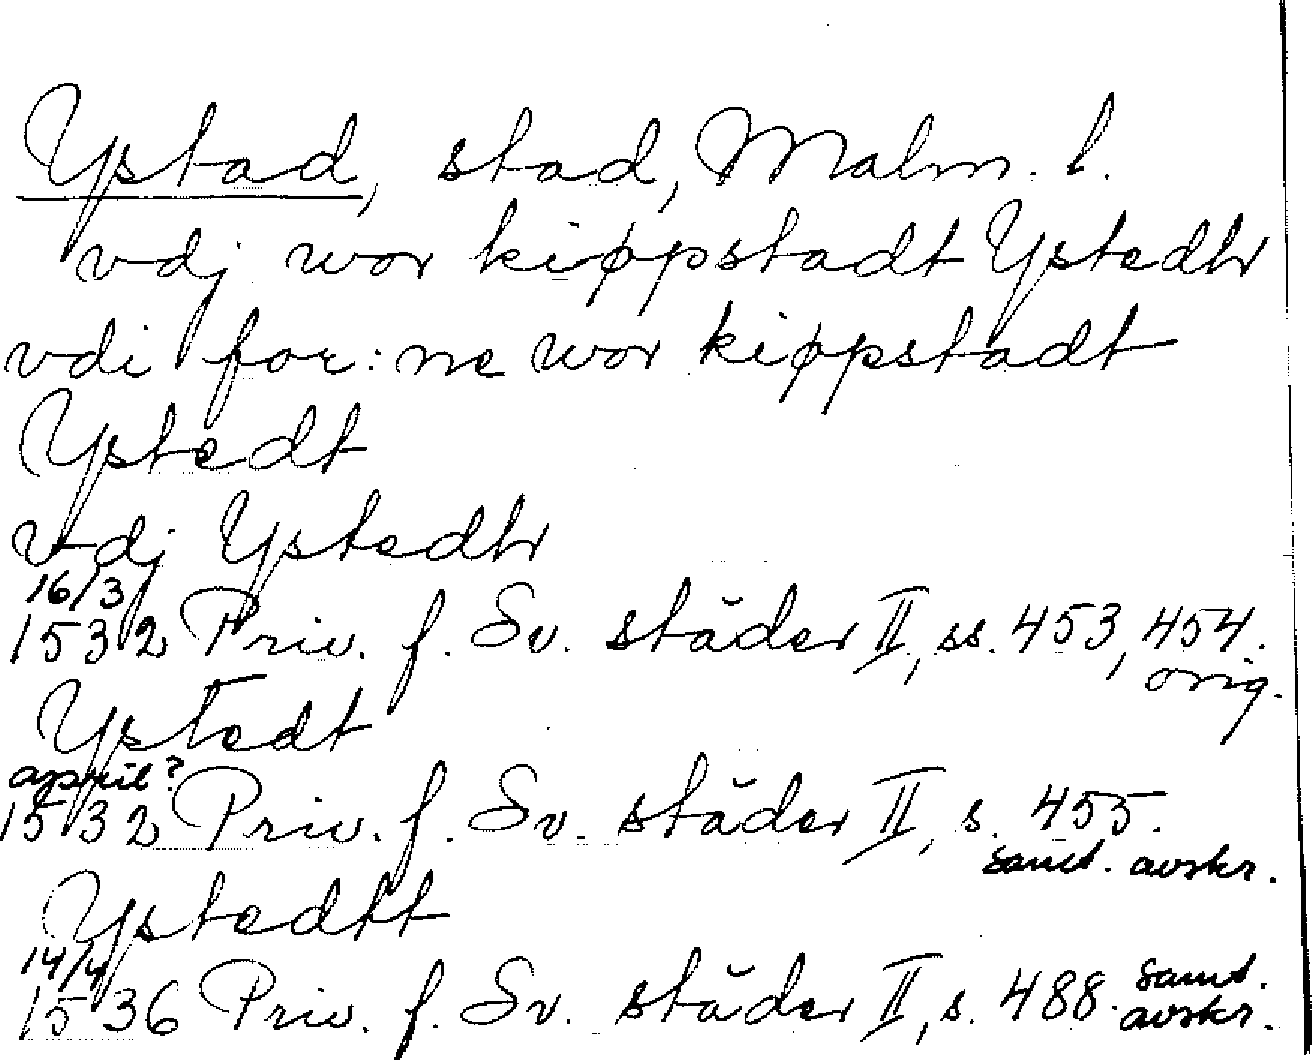 Ystad, stad, Malm. l.
vdj wor kiøpstadt Ystedtr
vdi for: ne wor kiøpstadt
Ystedt
vdj Ystedtr
16/3
1532 Priv. f. Sv. städer II, ss. 453, 454.
orig.
Ystedt
april?
1532 Priv. f. Sv. städer II, s. 455.
samt. avskr.
Ystedtt
14/4
1536 Priv. f. Sv. städer II, s. 488. samt.
avskr.